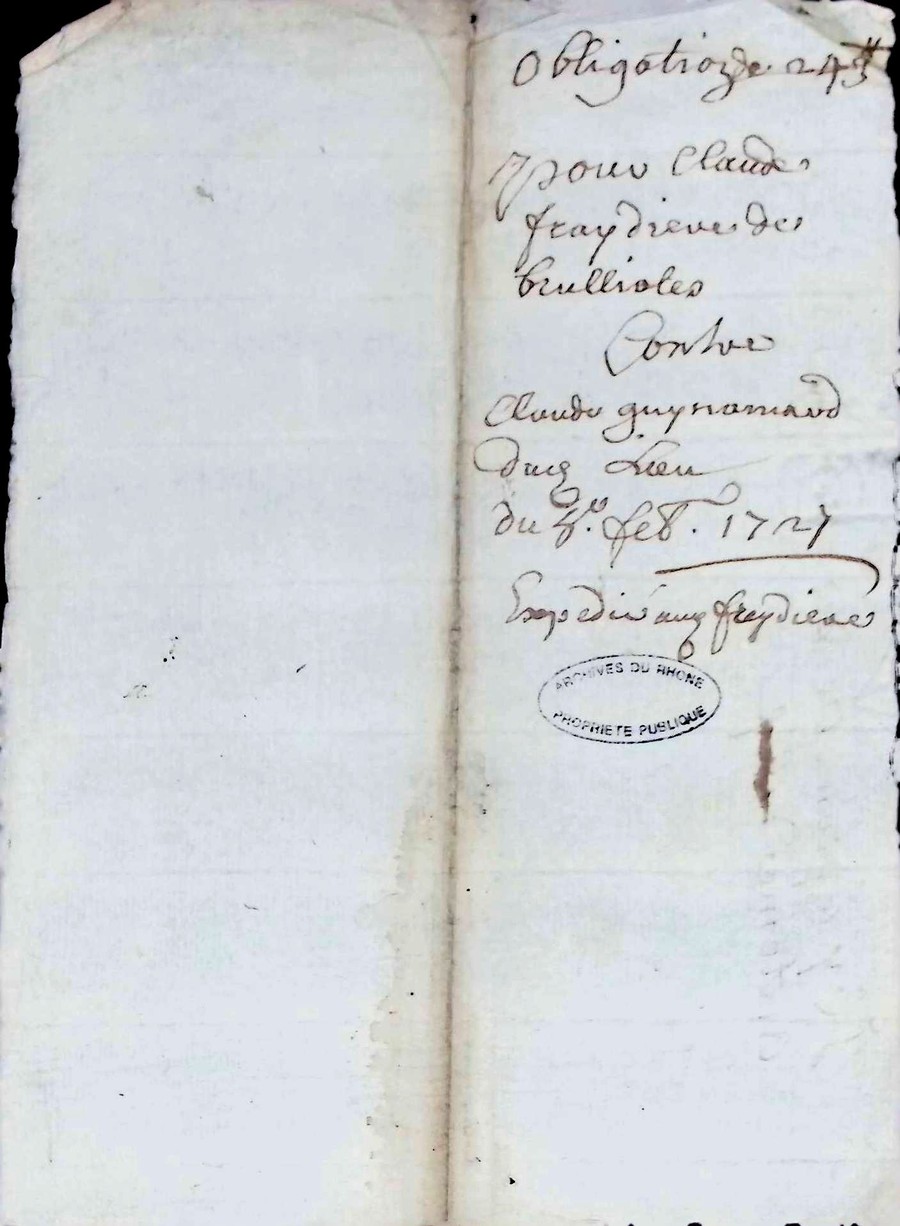 Obligation de 243#
pour Claude
fraydieve de
brullioles
Contre
Claude guynamand
dud Lieu
du 8.e feb. 1727
Expédié aud fraydieve
ARCHIVES DU RHONE
PROPRIETE PUBLIQUE